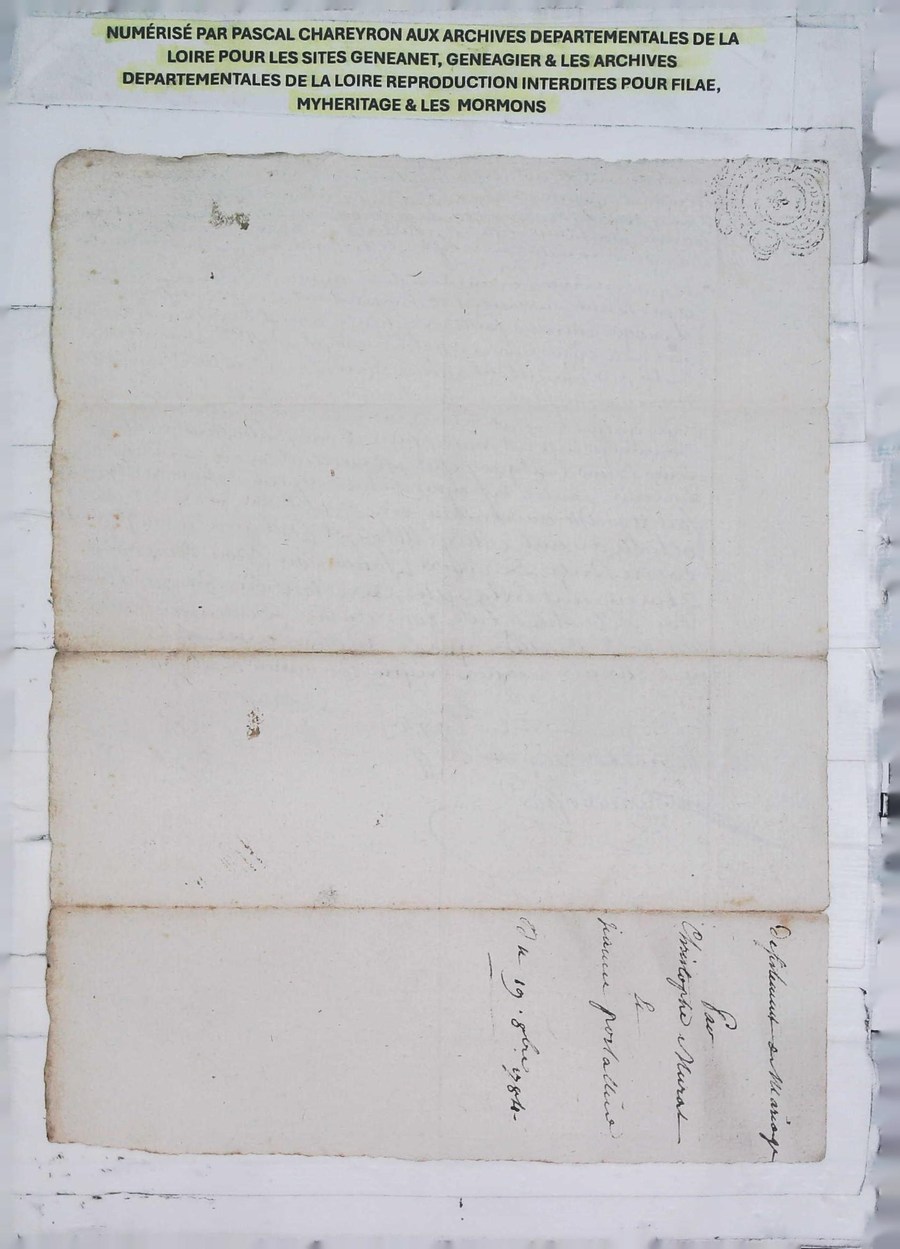 NUMÉRISÉ PAR PASCAL CHAREYRON AUX ARCHIVES DEPARTEMENTALES DE LA
LOIRE POUR LES SITES GENEANET, GENEAGIER & LES ARCHIVES
DEPARTEMENTALES DE LA LOIRE REPRODUCTION INTERDITES POUR FILAE,
MYHERITAGE & LES MORMONS
Département de Mariage
Par
Christophe Murat
Et
jeanne portallier
Du 19. 8bre 1784